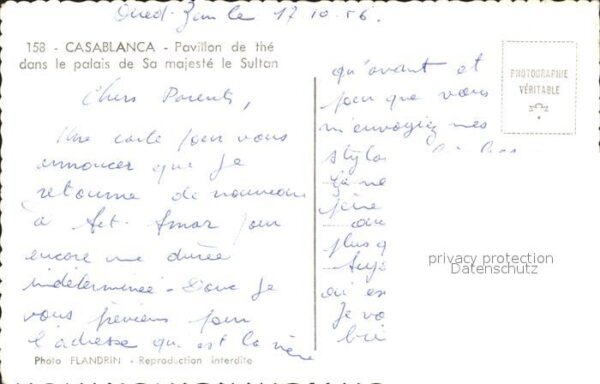 Oued-Zem le 17.10.56.
158 - CASABLANCA - Pavillon de thé
dans le palais de Sa majesté le Sultan
Chers Parents,
Une carte pour vous
annoncer que je
retourne de nouveau
à Aet. Amar pour
encore une durée
indéterminée - Donc je
vous préviens pour
l'adresse qui est la même
Photo FLANDRIN - Reproduction interdite
PHOTOGRAPHIE
VÉRITABLE
qu'avant et
pour que vous
m'envoyiez mes
stylos
ça ne
plus q
Je vo
privacy protection
Datenschutz